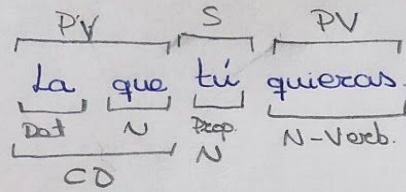 PV S PV
La que tú quieras.
Dat N Prop. N-Verb.
CD N